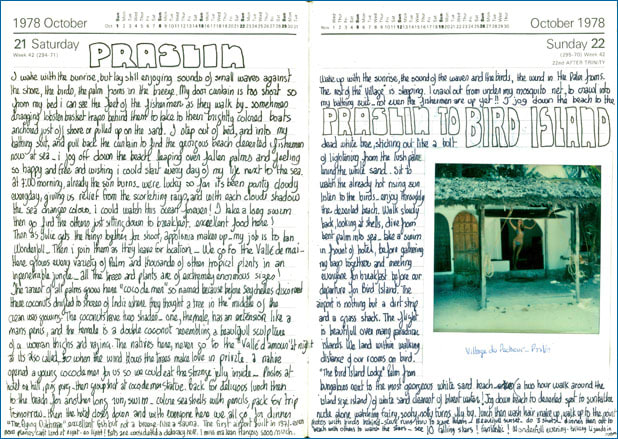 1978 October
October 1978
21 Saturday
Week 42 (294-71)
PRASLIN
I wake with the sunrise, but lay still enjoying sounds of small waves against
the shore, the birds, the palm fronds in the breeze. My door curtain is too short so
from my bed i can see the feet of the fishermen as they walk by - sometimes
dragging lobster basket traps behind them to take to their brightly colored boats
anchored just off shore or pulled up on the sand. I slip out of bed, and into my
bathing suit, and pull back the curtain to find the glorious beach deserted, fishermen
now at sea - i jog off down the beach, leaping over fallen palms and feeling
so happy and free and wishing i could start every day of my life next to the sea.
at 7.00 morning, already the sun burns. We're lucky so far it's been partly cloudy
everyday, giving us relief from the scorching rays, and with each cloud's shadow
the sea changes colour, i could watch this ocean forever! I take a long swim
then go find the others just sitting down to breakfast. excellent food here!
Then as Julie gets the things together for shoot, applying make up - my job is to tan
Wonderful! - Then i join them as they leave for location. - We go to the Vallée de mai -
Here grows every variety of Palm and thousands of other tropical plants in an
impenetrable jungle - all the trees and plants are of extremely enormous sizes!
The rarest of all palms grows here "coco de mer" so named because before Seychelles discovered
these coconuts drifted to shores of India where they thought a tree in the middle of the
ocean was growing. The coconuts have two shapes - one, the male, has an extension like a
mans penis, and the female is a double coconut resembling a beautiful sculpture
of a woman thighs and vagina. The natives here, never go to the "Vallée d'amour" at night
as its also called, for when the wind blows the trees make love in private. a native
opened a young coco de mer for us so we could eat the strange jelly inside - Photos at
then group shot at coco de mer statue. Back for delicious lunch then
to the beach for another long run, swim - colore seashells with pencils, pack for trip
tomorrow - then the hotel closes down and with everyone here we all go for dinner
Sunday 22
(295-70) Week 42
22nd AFTER TRINITY
Wake up with the sunrise, the sound of the waves and the birds, the wind in the Palm fronds.
The rest of the "village" is sleeping. I crawl out from under my mosquito net, to crawl into
my bathing suit - not even the fishermen are up yet!! I jog down the beach to the
PRASLIN TO BIRD ISLAND
dead white tree, sticking out like a bolt
of lightening from the fresh palms
lining the white sand. Sit to
watch the already hot rising sun
listen to the birds, enjoy thoroughly
the deserted beach. Walk slowly
back, looking at shells, dive from
bent palm into sea, take a swim
in front of hotel, before gathering
my bags together and meeting
everyone for breakfast before our
departure for Bird Island. The
airport is nothing but a dirt strip
and a grass shack. The flight
is beautiful over many paradise
islands. We land within walking
distance of our rooms on bird
"The Bird Island Lodge" Palm from
bungalows next to the most gorgeous white sand beach - a two hour walk around the
island of white sand clearest of blue waters. Jog down beach to deserted spot to sunbathe
nude alone watching fairy, sooty, noddy terns fly by. lunch then wash hair make up, walk up to the point
Village du Pecheur - Praslin